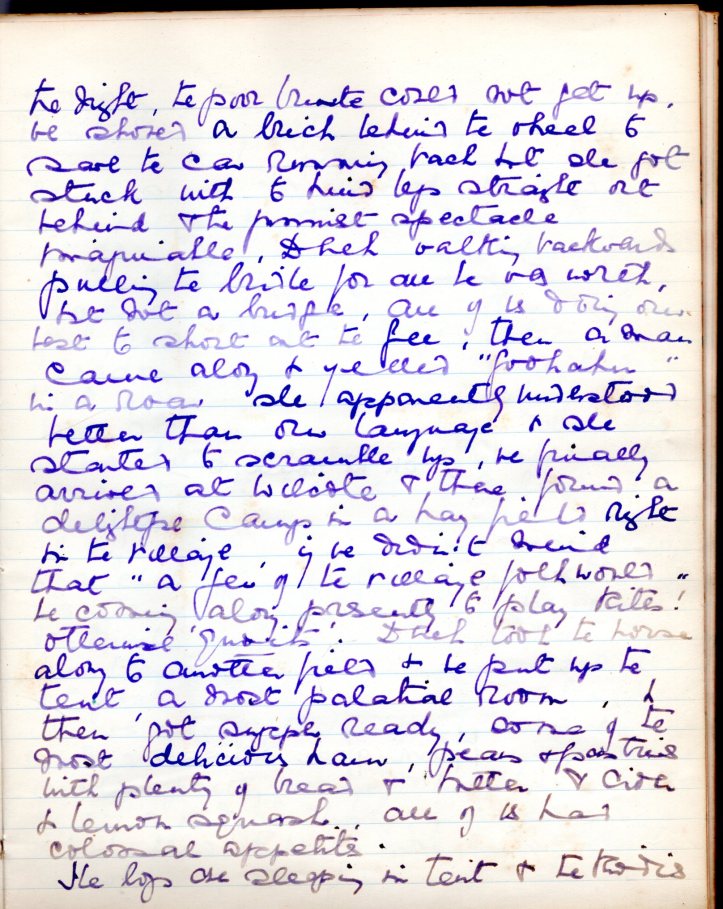 the right, the poor brute could not get up,
we shoved a brick behind the wheel to
save the car running back but she got
stuck with to hind legs straight out
behind & the funniest spectacle
imaginable, Dheh walking backwards
pulling the bridle for all he was worth,
but not a budge, all of us doing our
best to shout at the gee, then a man
came along & yelled
in a roar she apparently understood
better than our language & she
started to scramble up, we finally
arrived at Wilcote & there found a
delightful camp in a hay field right
in the village, if we didn't mind
that "a few of the village folk would"
be coming along presently to play kites!
otherwise 'quoits'. Dheh took the horse
along to another field & we put up the
tent, a most palatial room, &
then got supper ready, some of the
most delicious ham, peas & pastries
with plenty of bread & butter & cider
& lemon squash, all of us had
colossal appetites.
The boys are sleeping in tent &